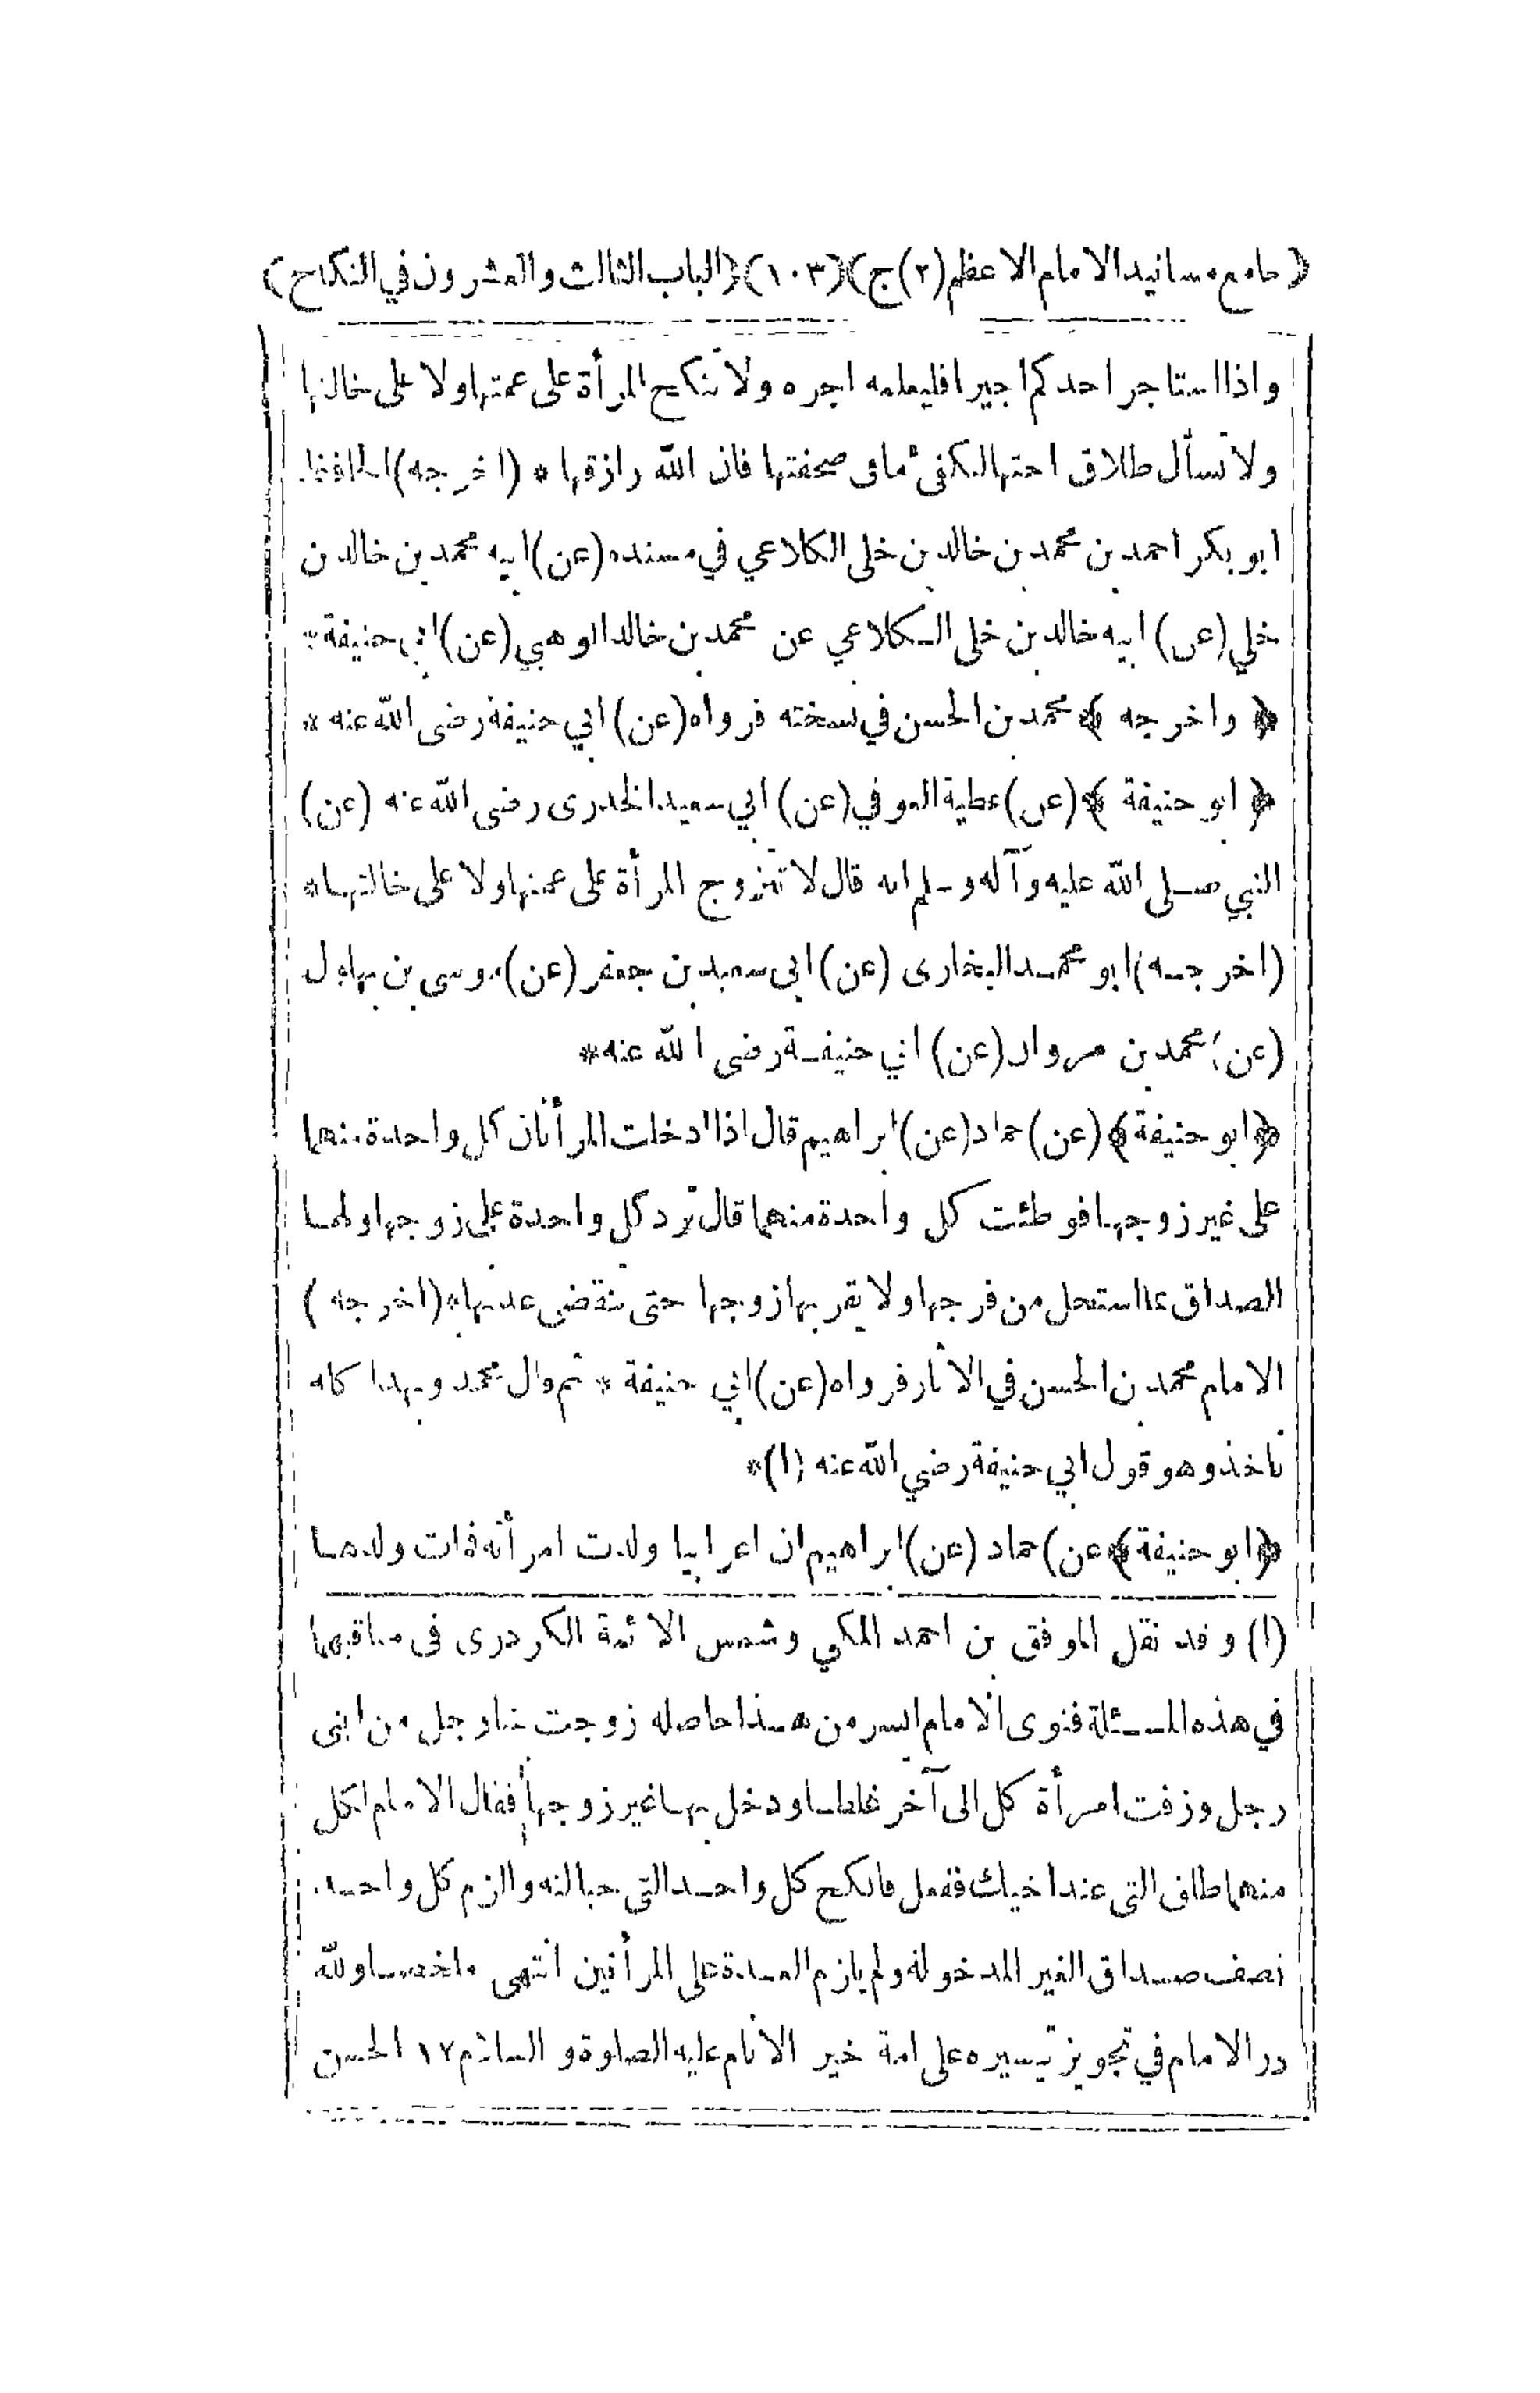 (جامع مسانيد الامام الاعظم (٢) ج) (١٠٣) (الباب الثالث والعشرون في النكاح)
واذا استاجر احدكم اجيرا فليعلمه اجره ولا تنكح المرأة على عمتها ولا على خالتها
ولا تسأل طلاق اختها لتكفئ مافى صحفتها فان الله رازقها * (اخرجه) الحافظ
ابو بكر احمد بن محمد بن خالد بن خلى الكلاعي في مسنده (عن) ابيه محمد بن خالد بن
خلي (عن) ابيه خالد بن خلى الكلاعي عن محمد بن خالد الوهبي (عن) ابي حنيفة *
﴿ واخرجه ﴾ محمد بن الحسن في نسخته فرواه (عن) ابي حنيفة رضى الله عنه *
﴿ ابو حنيفة ﴾ (عن) عطية العوفي (عن) ابي سعيد الخدرى رضى الله عنه (عن)
النبي صلى الله عليه وآله وسلم انه قال لا تتزوج المرأة على عمتها ولا على خالتها *
(اخرجه) ابو محمد البخارى (عن) ابى سعيد بن جعفر (عن) موسى بن بهلول
(عن) محمد بن مروان (عن) ابي حنيفة رضى الله عنه *
﴿ ابو حنيفة ﴾ (عن) حماد (عن) ابراهيم قال اذا ادخلت المرأتان كل واحدة منهما
على غير زوجها فوطئت كل واحدة منهما قال ترد كل واحدة على زوجها ولهما
الصداق بما استحل من فرجها ولا يقربها زوجها حتى تنقضى عدتها * (اخرجه)
الامام محمد بن الحسن في الآثار فرواه (عن) ابي حنيفة * ثم قال محمد وبهذا كله
ناخذ وهو قول ابي حنيفة رضي الله عنه (١) *
﴿ ابو حنيفة ﴾ عن) حماد (عن) ابراهيم ان اعرابيا ولدت امرأته فمات ولدها
(١) وقد نقل الموفق بن احمد المكي وشمس الائمة الكردرى فى مناقبهما
في هذه المسئلة فتوى الامام ايسر من هذا حاصله زوجت بنتا رجل من ابنى
رجل وزفت امرأة كل الى آخر غلطا ودخل بها غير زوجها فقال الامام لكل
منهما طلق التى عند اخيك ففعل فانكح كل واحد التى حبا لنه والزم كل واحد
نصف صداق الغير المدخولة ولم يلزم العدة على المرأتين انتهى ملخصا ولله
در الامام في تجويز تيسيره على امة خير الانام عليه الصلوة والسلام ١٢ الحسن